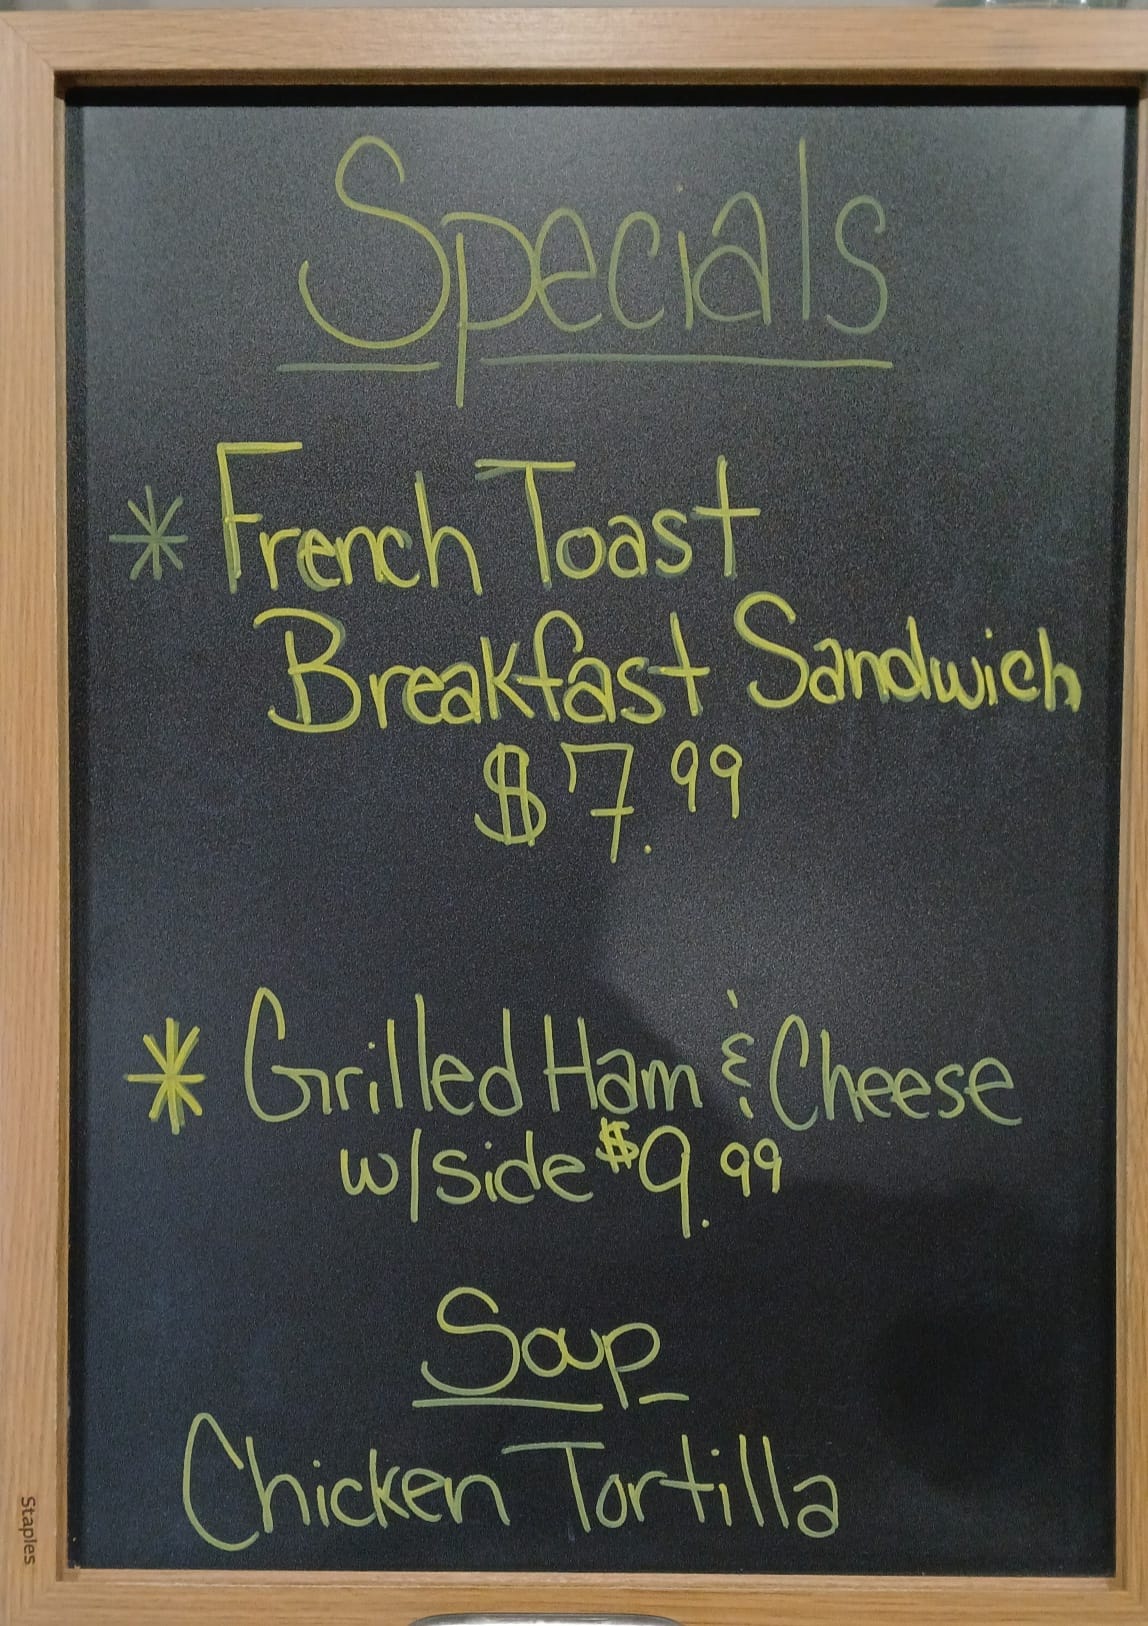 Specials
* French Toast
Breakfast Sandwich
$7.99
* Grilled Ham & Cheese
w/side $9.99
Soup
Chicken Tortilla
Staples